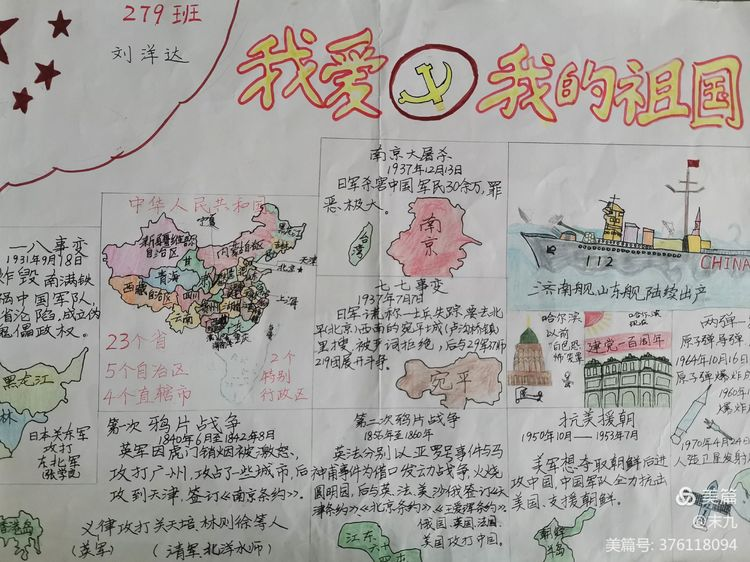 279班
刘洋达
我爱 我的祖国
一八事变
1931年9月18日
炸毁南满铁
祸中国军队,
省沦陷,成立伪
傀儡政权。
黑龙江
林
日本关东军
攻打
东北军
(张学良)
中华人民共和国
新疆维吾尔
自治区
内蒙古自治区
黑龙江
青海
西藏自治区
云南
北京
天津
上海
23个省
5个自治区
4个直辖市
2个
特别
行政区
南京大屠杀
1937年12月13日
日军杀害中国军民30余万,罪
恶极大。
台湾
南京
七七事变
1937年7月7日
日军谎称一士兵失踪,要去北
平(北京)西南的宛平城(卢沟桥镇)
里搜,被予词拒绝,后与29军37师
219团展开斗争。
宛平
112
CHINA
济南舰,山东舰陆续出产
哈尔滨
以前
哈尔滨
现在
建党一百周年
两弹一
原子弹导弹
1964年10月16日
原子弹爆炸成
1960年1
1970年4月24日
人造卫星发射
第一次鸦片战争
1840年6月至1842年8月
英军因虎门销烟被激怒,
攻打广州,攻占了一些城市,后
攻到天津,签订《南京条约》。
义律攻打关天培,林则徐等人
(英军)
(清军,北洋水师)
第二次鸦片战争
1856年至1860年
英法分别以亚罗号事件与马
神甫事件为借口发动战争,火烧
圆明园,后与英、法、美、沙俄签订《天
津条约》《北京条约》《瑷珲条约》
俄国,英国,法国,
美国攻打中国。
抗美援朝
1950年10月—1953年7月
美军想夺取朝鲜后进
攻中国,中国军队全力抗击
美国、支援朝鲜。
朝鲜
半岛
江东
六十四
香港岛
美篇
@未九
美篇号: 376118094